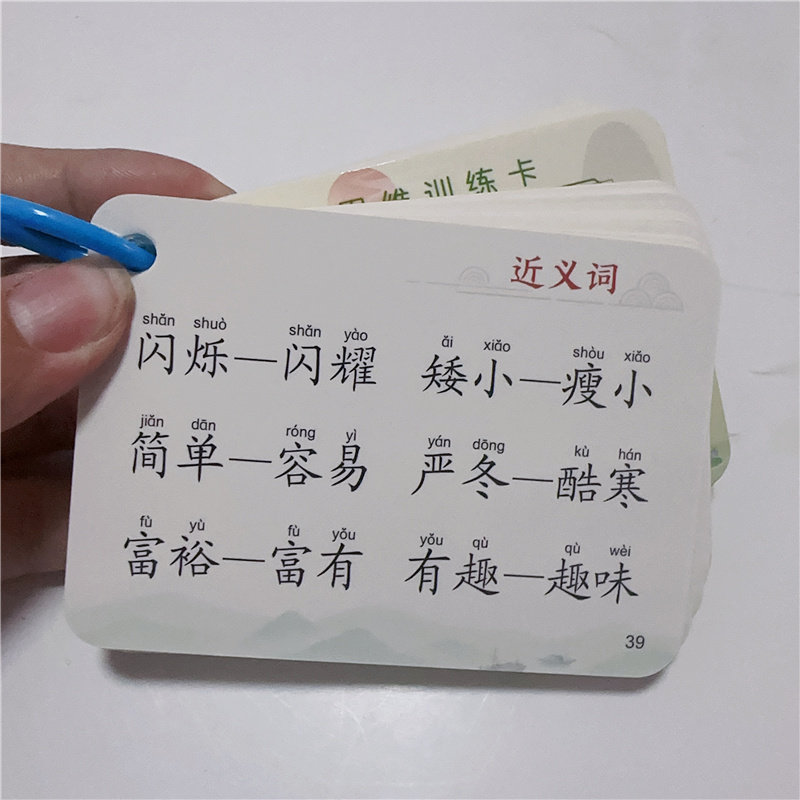 维训练卡
近义词
shǎn shuò shǎn yào ǎi xiǎo shòu xiǎo
闪烁—闪耀 矮小—瘦小
jiǎn dān róng yì yán dōng kù hán
简单—容易 严冬—酷寒
fù yù fù yǒu yǒu qù qù wèi
富裕—富有 有趣—趣味
39